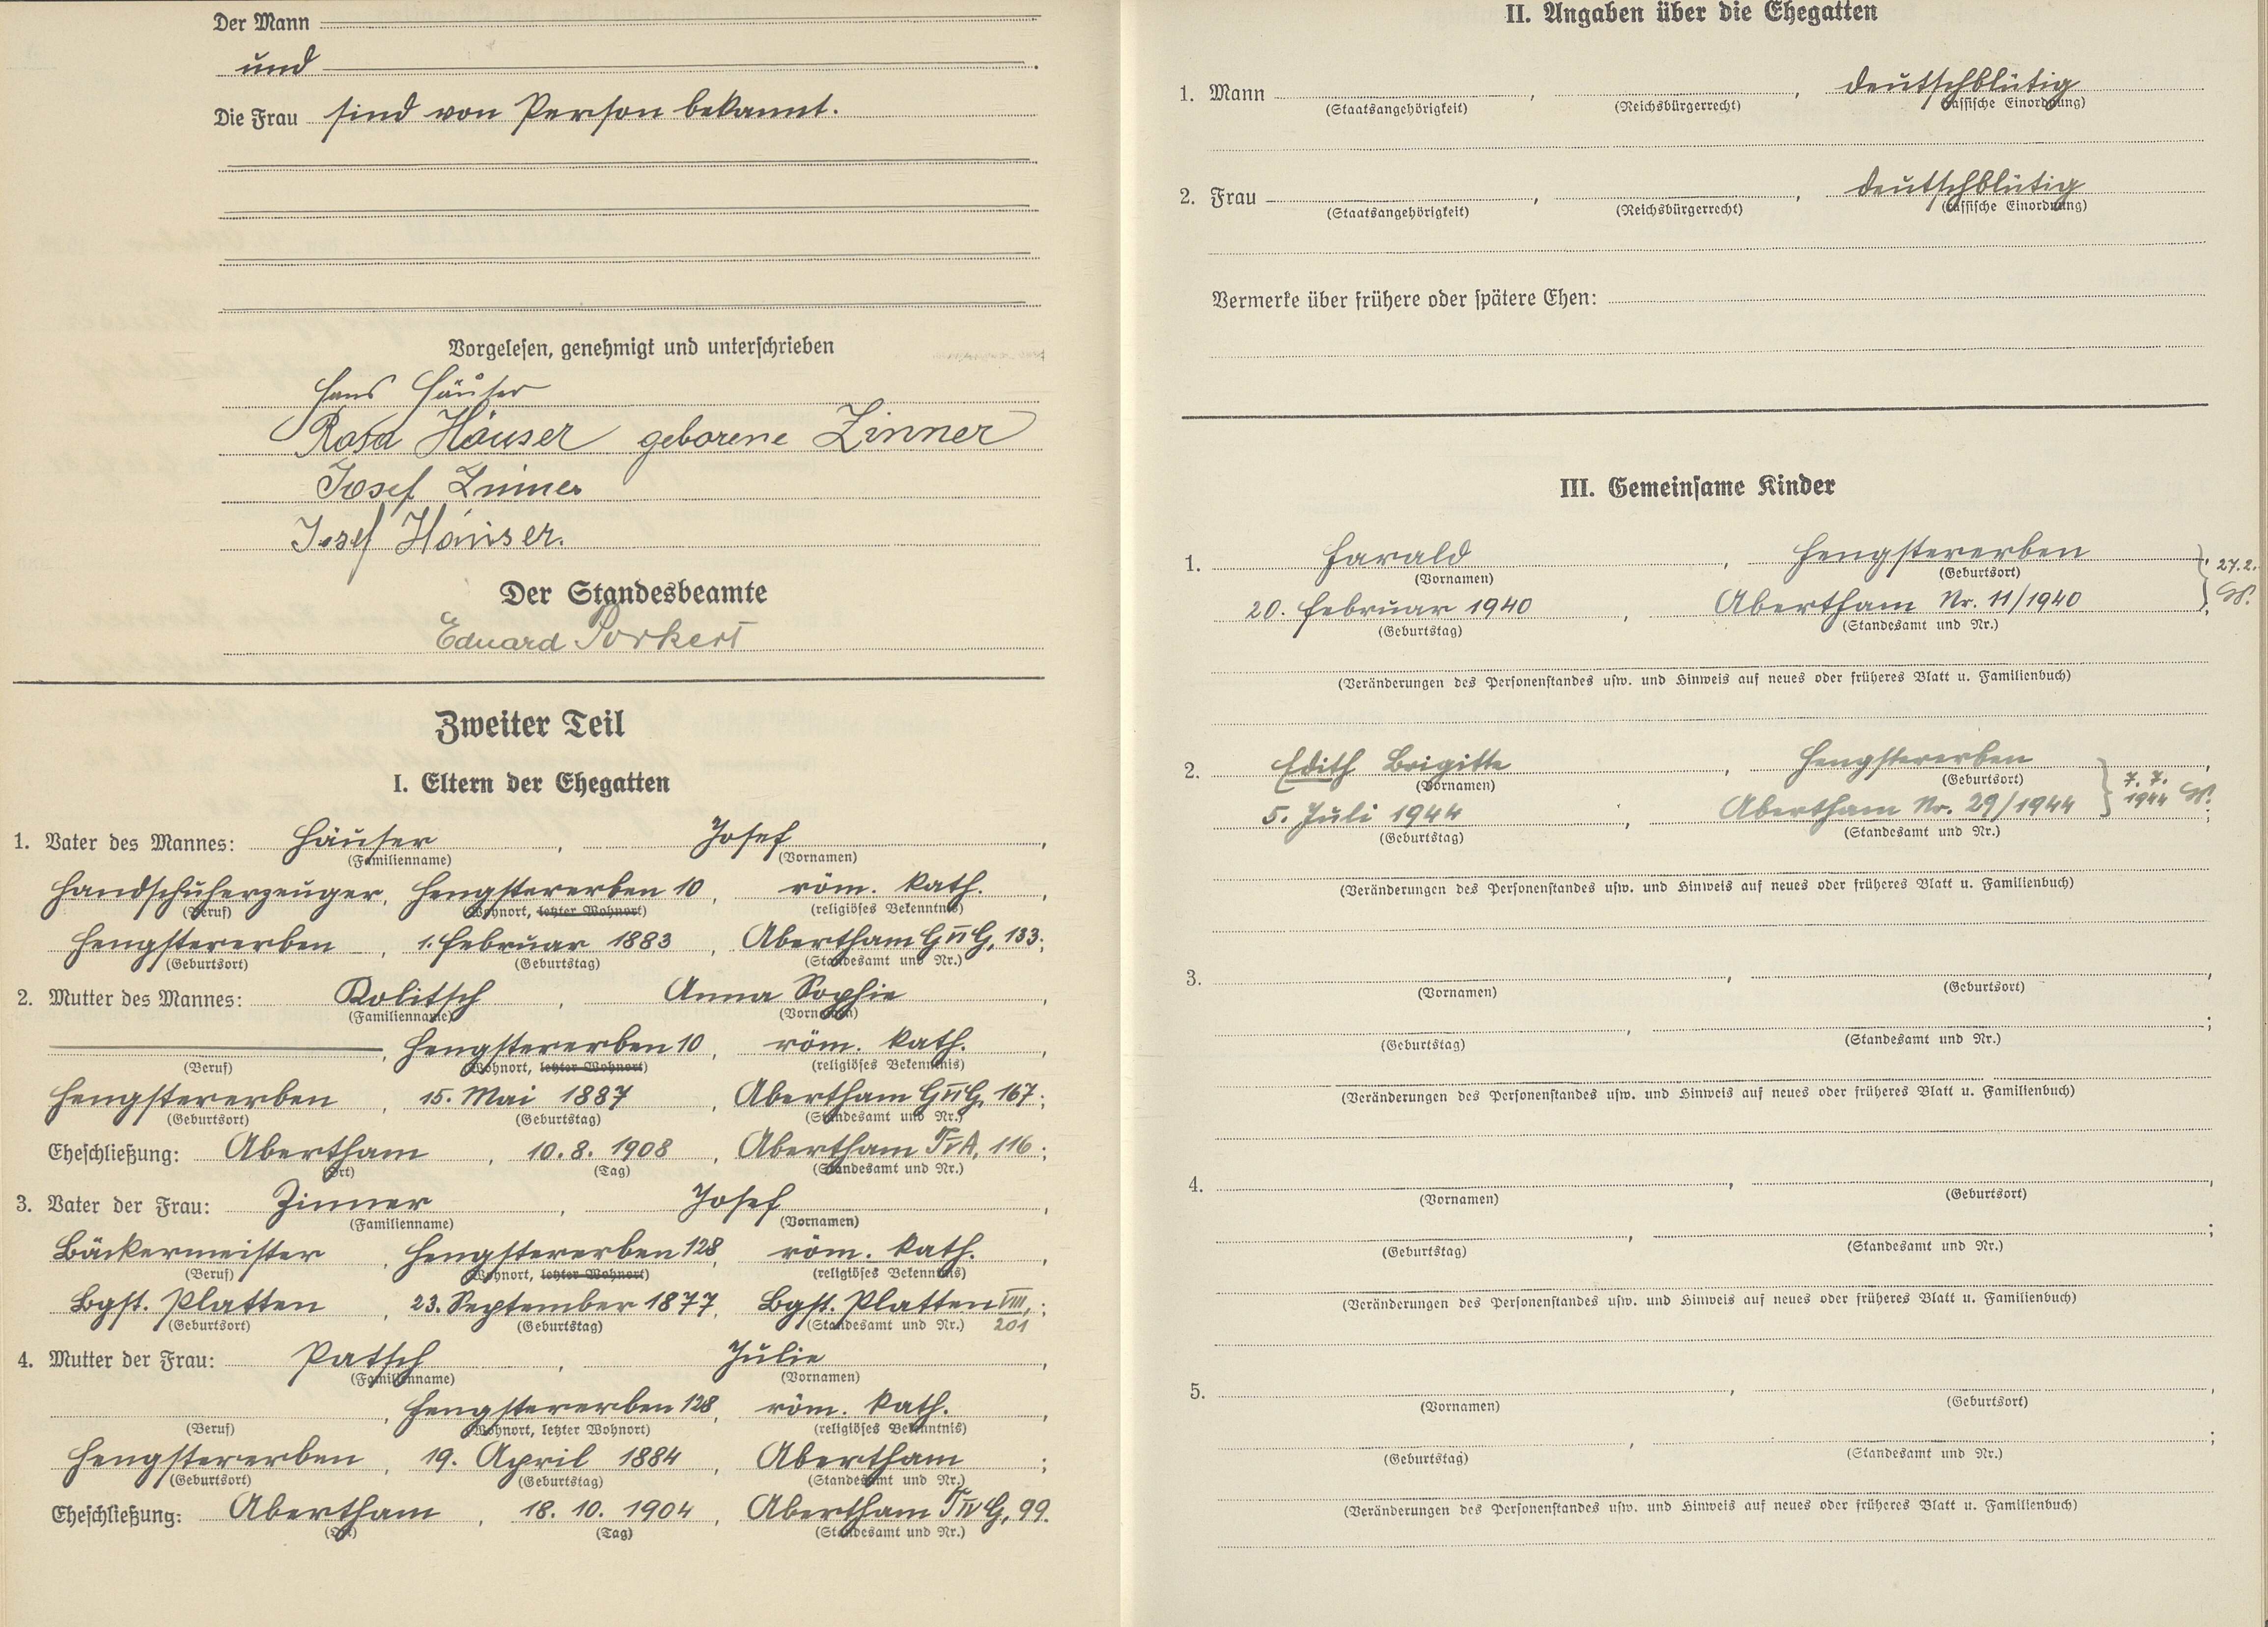 Der Mann
und
Die Frau sind von Person bekannt.
Vorgelesen, genehmigt und unterschrieben
Hans Häuser
Rosa Häuser geborene Zinner
Josef Zinner
Josef Häuser.
Der Standesbeamte
Eduard Porkert
Zweiter Teil
I. Eltern der Ehegatten
1. Vater des Mannes: Häuser, Josef,
(Familienname) (Vornamen)
Handschuherzeuger, Hengstererben 10, röm. kath.,
(Beruf) (Wohnort, letzter Wohnort) (religiöses Bekenntnis)
Hengstererben, 1. Februar 1883, Abertham G II G, 133;
(Geburtsort) (Geburtstag) (Standesamt und Nr.)
2. Mutter des Mannes: Kolitsch, Anna Sophie,
(Familienname) (Vornamen)
, Hengstererben 10, röm. kath.,
(Beruf) (Wohnort, letzter Wohnort) (religiöses Bekenntnis)
Hengstererben, 15. Mai 1887, Abertham G II G, 167;
(Geburtsort) (Geburtstag) (Standesamt und Nr.)
Eheschließung: Abertham, 10. 8. 1908, Abertham Tr A, 116;
(Ort) (Tag) (Standesamt und Nr.)
3. Vater der Frau: Zinner, Josef,
(Familienname) (Vornamen)
Bäckermeister, Hengstererben 128, röm. kath.,
(Beruf) (Wohnort, letzter Wohnort) (religiöses Bekenntnis)
Bgst. Platten, 23. September 1877, Bgst. Platten VIII,;
(Geburtsort) (Geburtstag) (Standesamt und Nr.) 201
4. Mutter der Frau: Patsch, Julie,
(Familienname) (Vornamen)
, Hengstererben 128, röm. kath.,
(Beruf) (Wohnort, letzter Wohnort) (religiöses Bekenntnis)
Hengstererben, 19. April 1884, Abertham;
(Geburtsort) (Geburtstag) (Standesamt und Nr.)
Eheschließung: Abertham, 18. 10. 1904, Abertham G, 99.
(Ort) (Tag) (Standesamt und Nr.)
II. Angaben über die Ehegatten
1. Mann , , deutschblütig
(Staatsangehörigkeit) (Reichsbürgerrecht) (rassische Einordnung)
2. Frau , , deutschblütig
(Staatsangehörigkeit) (Reichsbürgerrecht) (rassische Einordnung)
Vermerke über frühere oder spätere Ehen:
III. Gemeinsame Kinder
1. Harald, Hengstererben, 27. 2.
(Vornamen) (Geburtsort)
20. Februar 1940, Abertham Nr. 11/1940;
(Geburtstag) (Standesamt und Nr.)
(Veränderungen des Personenstandes usw. und Hinweis auf neues oder früheres Blatt u. Familienbuch)
2. Edith Brigitte, Hengstererben,
(Vornamen) (Geburtsort) 7. 7.
5. Juli 1944, Abertham Nr. 29/1944 1944;
(Geburtstag) (Standesamt und Nr.)
(Veränderungen des Personenstandes usw. und Hinweis auf neues oder früheres Blatt u. Familienbuch)
3. , ,
(Vornamen) (Geburtsort)
, ;
(Geburtstag) (Standesamt und Nr.)
(Veränderungen des Personenstandes usw. und Hinweis auf neues oder früheres Blatt u. Familienbuch)
4. , ,
(Vornamen) (Geburtsort)
, ;
(Geburtstag) (Standesamt und Nr.)
(Veränderungen des Personenstandes usw. und Hinweis auf neues oder früheres Blatt u. Familienbuch)
5. , ,
(Vornamen) (Geburtsort)
, ;
(Geburtstag) (Standesamt und Nr.)
(Veränderungen des Personenstandes usw. und Hinweis auf neues oder früheres Blatt u. Familienbuch)